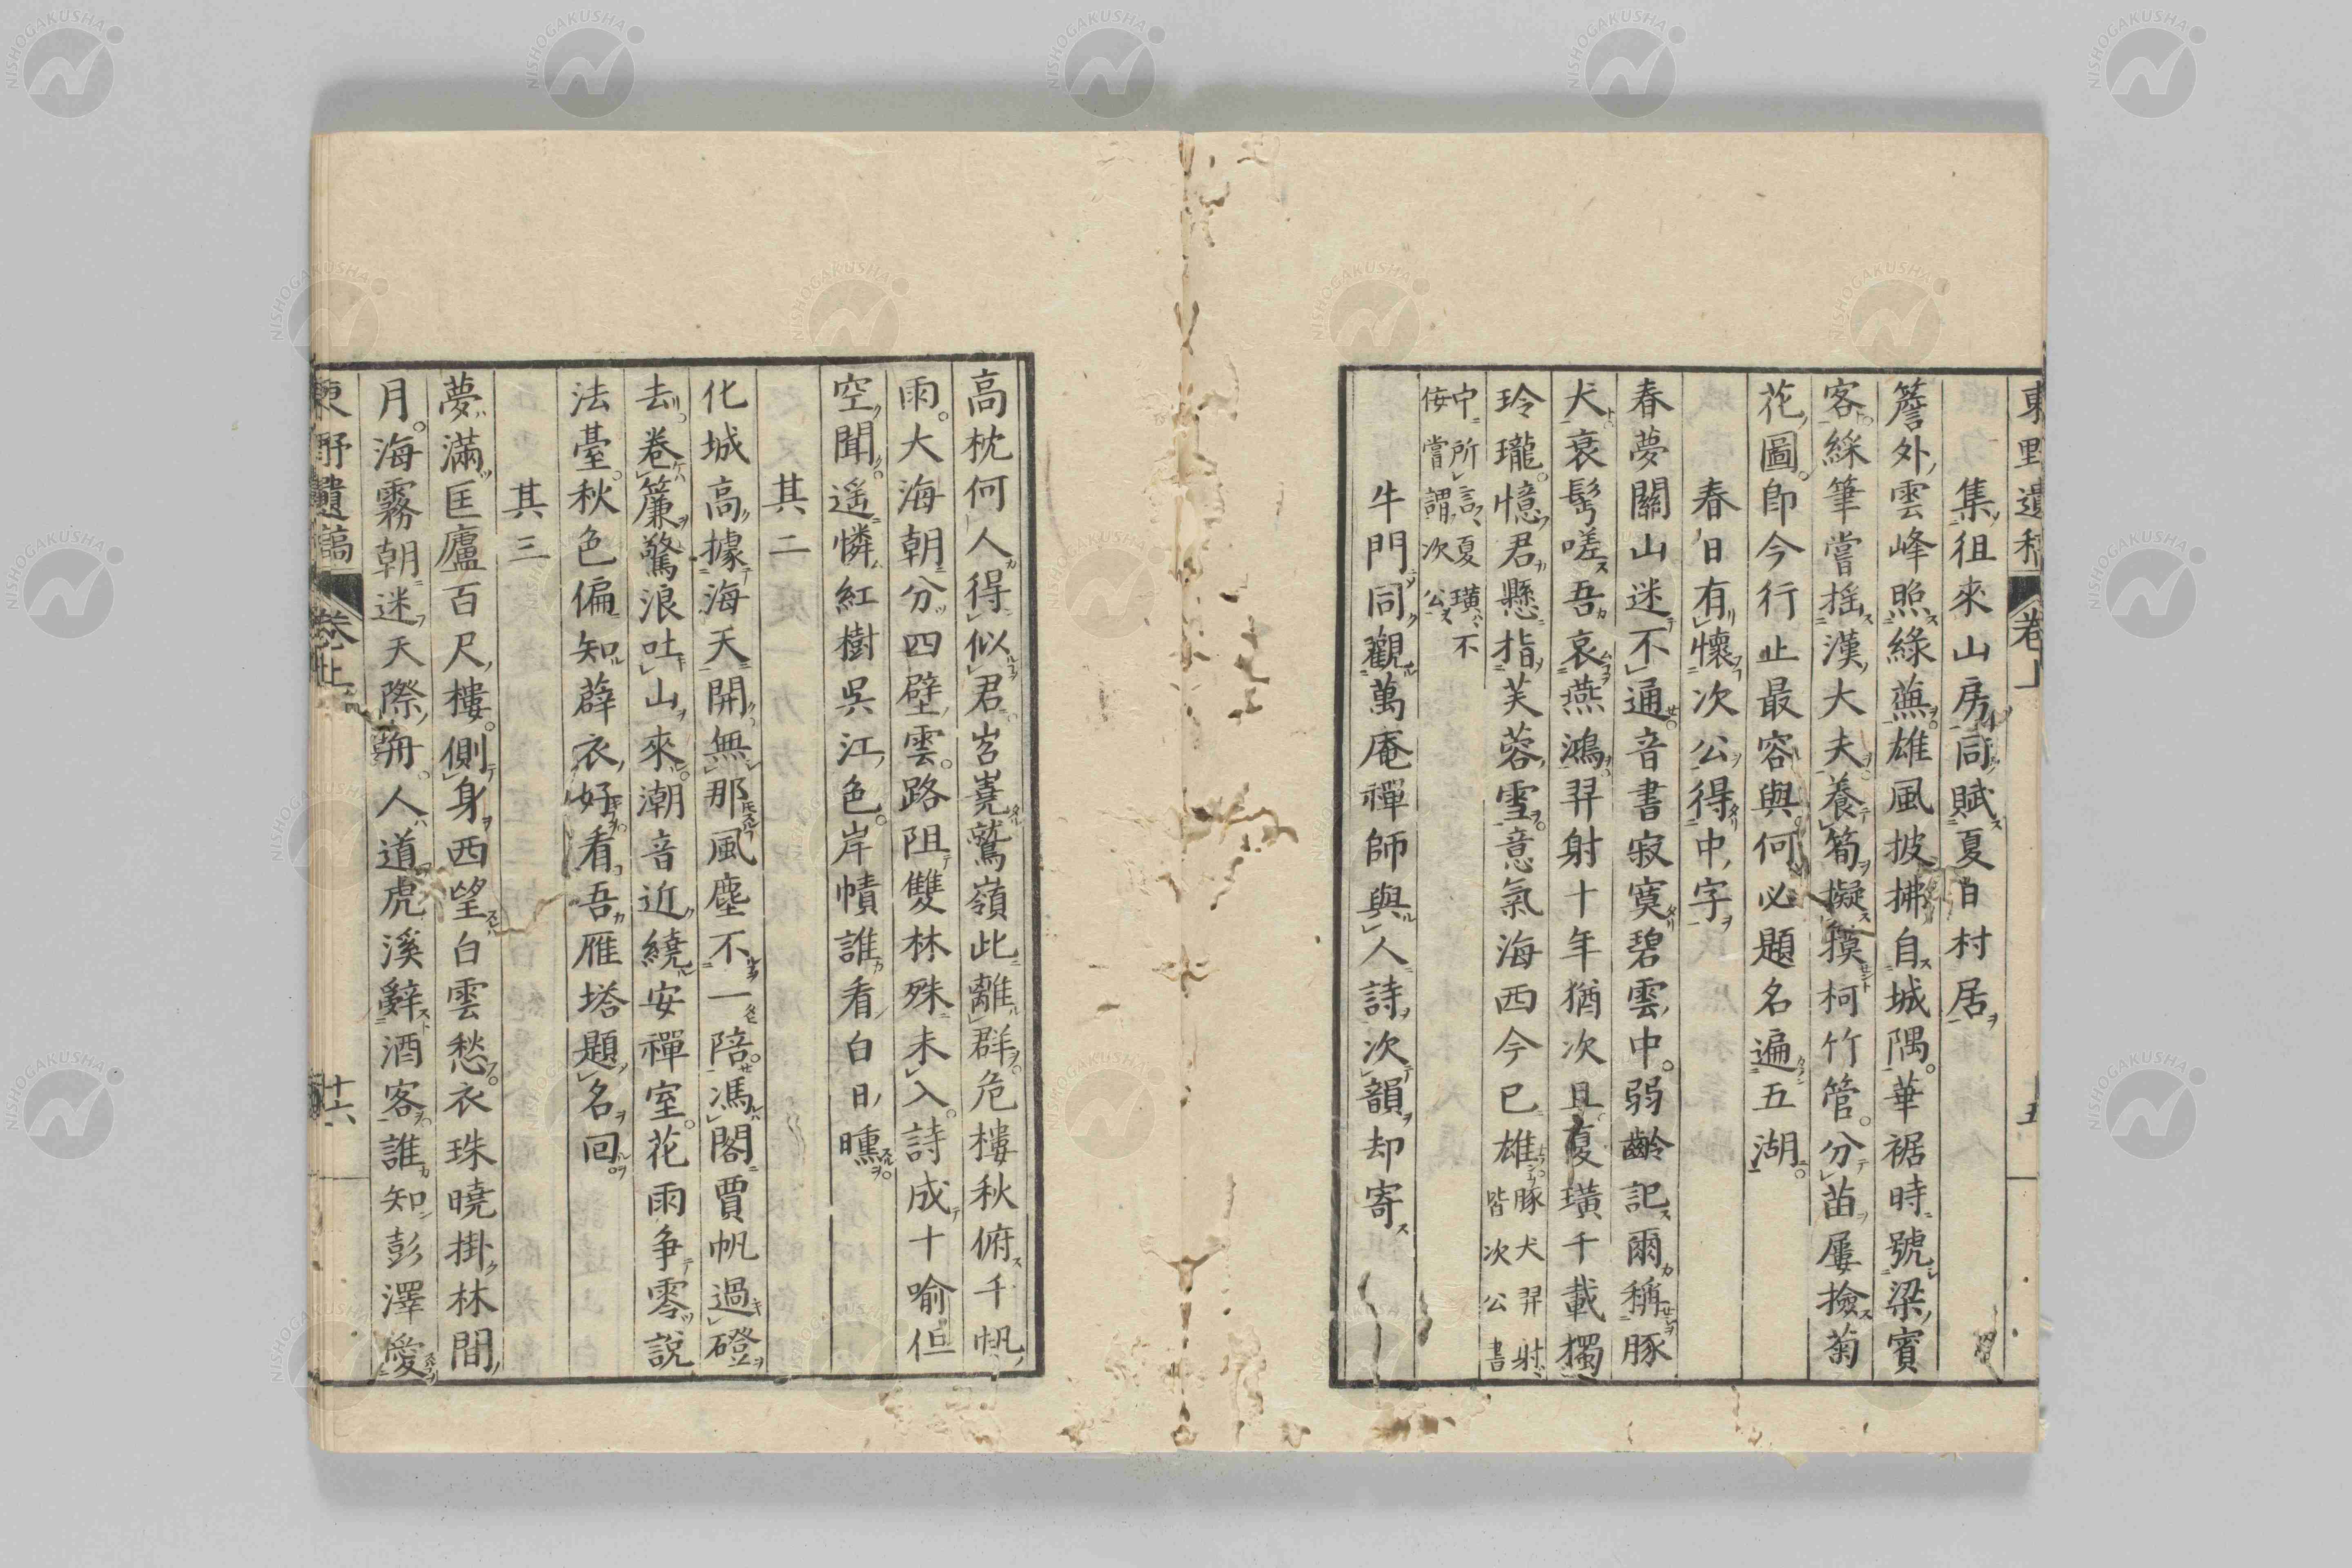 東野遺稿 卷上 十五
集徂來山房同賦夏日村居
簷外雲峰照綠蕪雄風披拂自城隅華裾時號梁賓
客綵筆嘗搖漢大夫養筍擬摸柯竹管分苗屢撿菊
花圖卽今行止最容與何必題名遍五湖
春日有懷次公得中字
春夢關山迷不通音書寂寞碧雲中弱齡記爾稱豚
犬衰髩嗟吾哀燕鴻羿射十年猶次且夏璜千載獨
玲瓏憶君懸指芙蓉雪意氣海西今已雄豚犬羿射皆次公書
中所言夏璜不佞嘗謂次公
牛門同觀萬庵禪師與人詩次韻却寄
高枕何人得似君岧嶤鷲嶺此離群危樓秋俯千帆
雨大海朝分四壁雲路阻雙林殊未入詩成十喻但
空聞遙憐紅樹吳江色岸幘誰看白日曛
其二
化城高據海天開無那風塵不一陪馮閣賈帆過磴
去卷簾驚浪吐山來潮音近繞安禪室花雨争零說
法臺秋色偏知薜衣好看吾雁塔題名回
其三
夢滿匡廬百尺樓側身西望白雲愁衣珠曉掛林間
月海霧朝迷天際舟人道虎溪辭酒客誰知彭澤愛
東野遺稿 卷上 十六
NISHOGAKUSHA